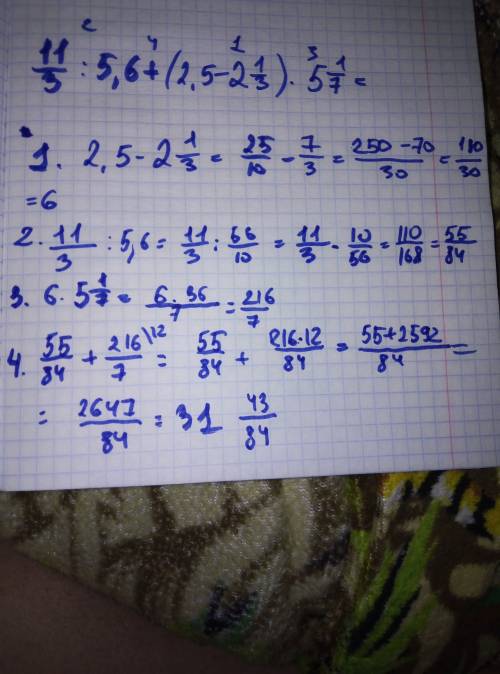 2 4 1 3
11/3 : 5,6 + (2,5 - 2 1/3) · 5 1/7 =
1. 2,5 - 2 1/3 = 25/10 - 7/3 = 250-70/30 = 180/30
= 6
2. 11/3 : 5,6 = 11/3 : 56/10 = 11/3 · 10/56 = 110/168 = 55/84
3. 6 · 5 1/7 = 6·36/7 = 216/7
4. 55/84 + 216/7 \12 = 55/84 + 216·12/84 = 55+2592/84 =
= 2647/84 = 31 43/84